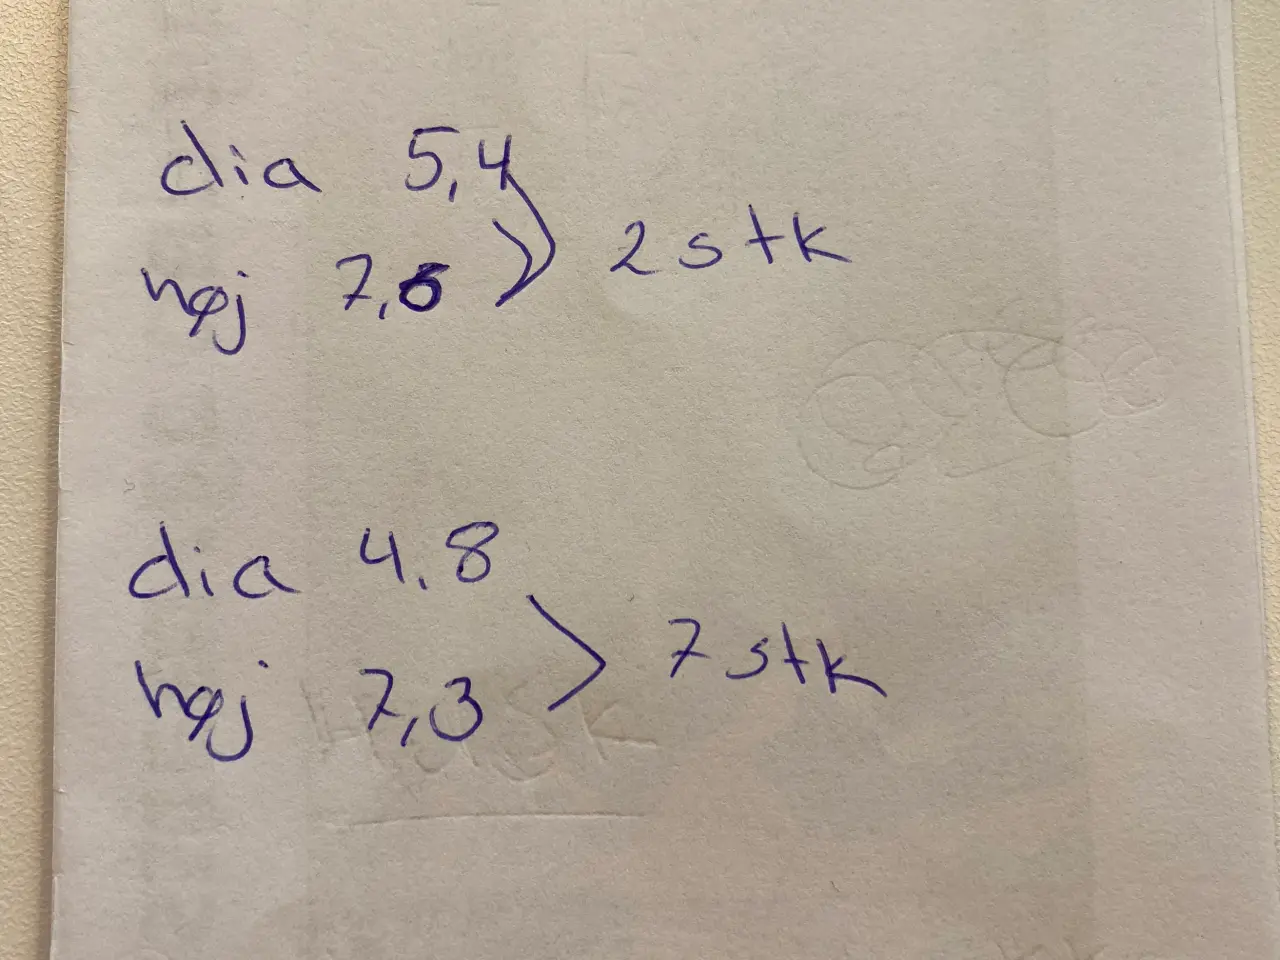 dia 5,4
høj 7,6
2 stk
dia 4,8
høj 7,3
7 stk
Husk